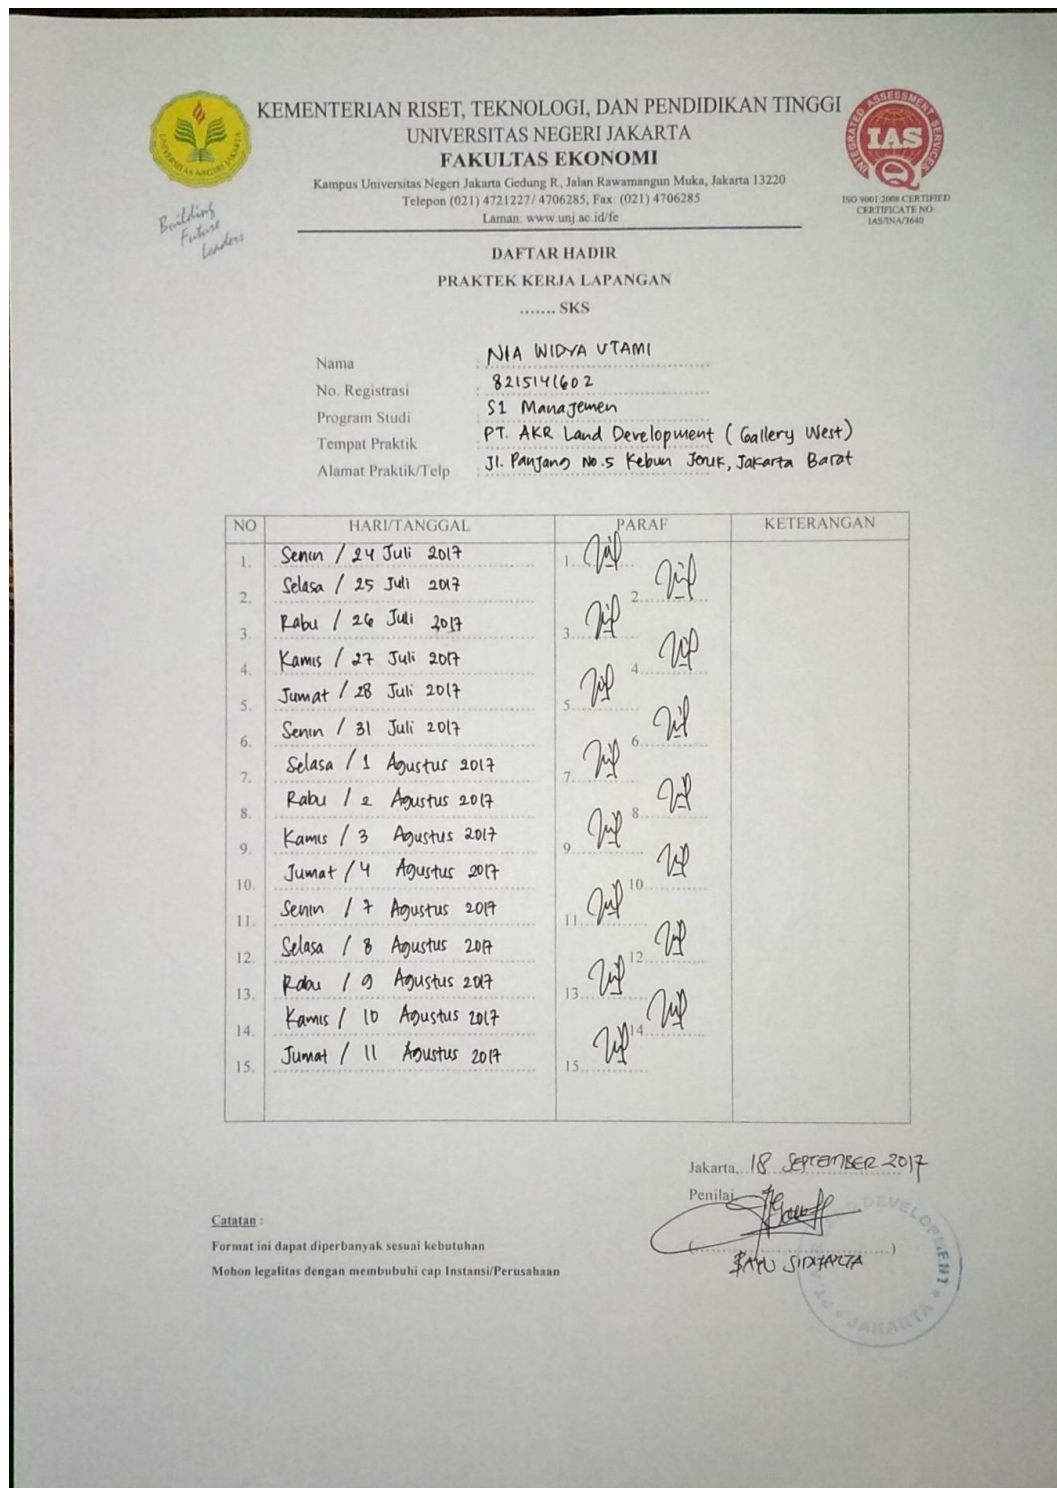 KEMENTERIAN RISET, TEKNOLOGI, DAN PENDIDIKAN TINGGI
UNIVERSITAS NEGERI JAKARTA
FAKULTAS EKONOMI
Kampus Universitas Negeri Jakarta Gedung R, Jalan Rawamangun Muka, Jakarta 13220
Telepon (021) 4721227/ 4706285, Fax: (021) 4706285
Laman: www.unj.ac.id/fe
UNIVERSITAS NEGERI JAKARTA
Building
Future
Leaders
INTEGRATED ASSESSMENT SERVICES
IAS
ISO 9001:2008 CERTIFIED
CERTIFICATE NO:
IAS/INA/3640
DAFTAR HADIR
PRAKTEK KERJA LAPANGAN
....... SKS
Nama : NIA WIDYA UTAMI
No. Registrasi : 8215141602
Program Studi : S1 Manajemen
Tempat Praktik : PT. AKR Land Development ( Gallery West)
Alamat Praktik/Telp : Jl. Panjang No.5 Kebun Jeruk, Jakarta Barat
NO HARI/TANGGAL PARAF KETERANGAN
1. Senin / 24 Juli 2017 1.
2. Selasa / 25 Juli 2017 2.
3. Rabu / 26 Juli 2017 3.
4. Kamis / 27 Juli 2017 4.
5. Jumat / 28 Juli 2017 5.
6. Senin / 31 Juli 2017 6.
7. Selasa / 1 Agustus 2017 7.
8. Rabu / 2 Agustus 2017 8.
9. Kamis / 3 Agustus 2017 9.
10. Jumat / 4 Agustus 2017 10.
11. Senin / 7 Agustus 2017 11.
12. Selasa / 8 Agustus 2017 12.
13. Rabu / 9 Agustus 2017 13.
14. Kamis / 10 Agustus 2017 14.
15. Jumat / 11 Agustus 2017 15.
Jakarta, 18 SEPTEMBER 2017
Penilai,
(..............................)
BAYU SIDHARTA
DEVELOPMENT
JAKARTA
Catatan :
Format ini dapat diperbanyak sesuai kebutuhan
Mohon legalitas dengan membubuhi cap Instansi/Perusahaan